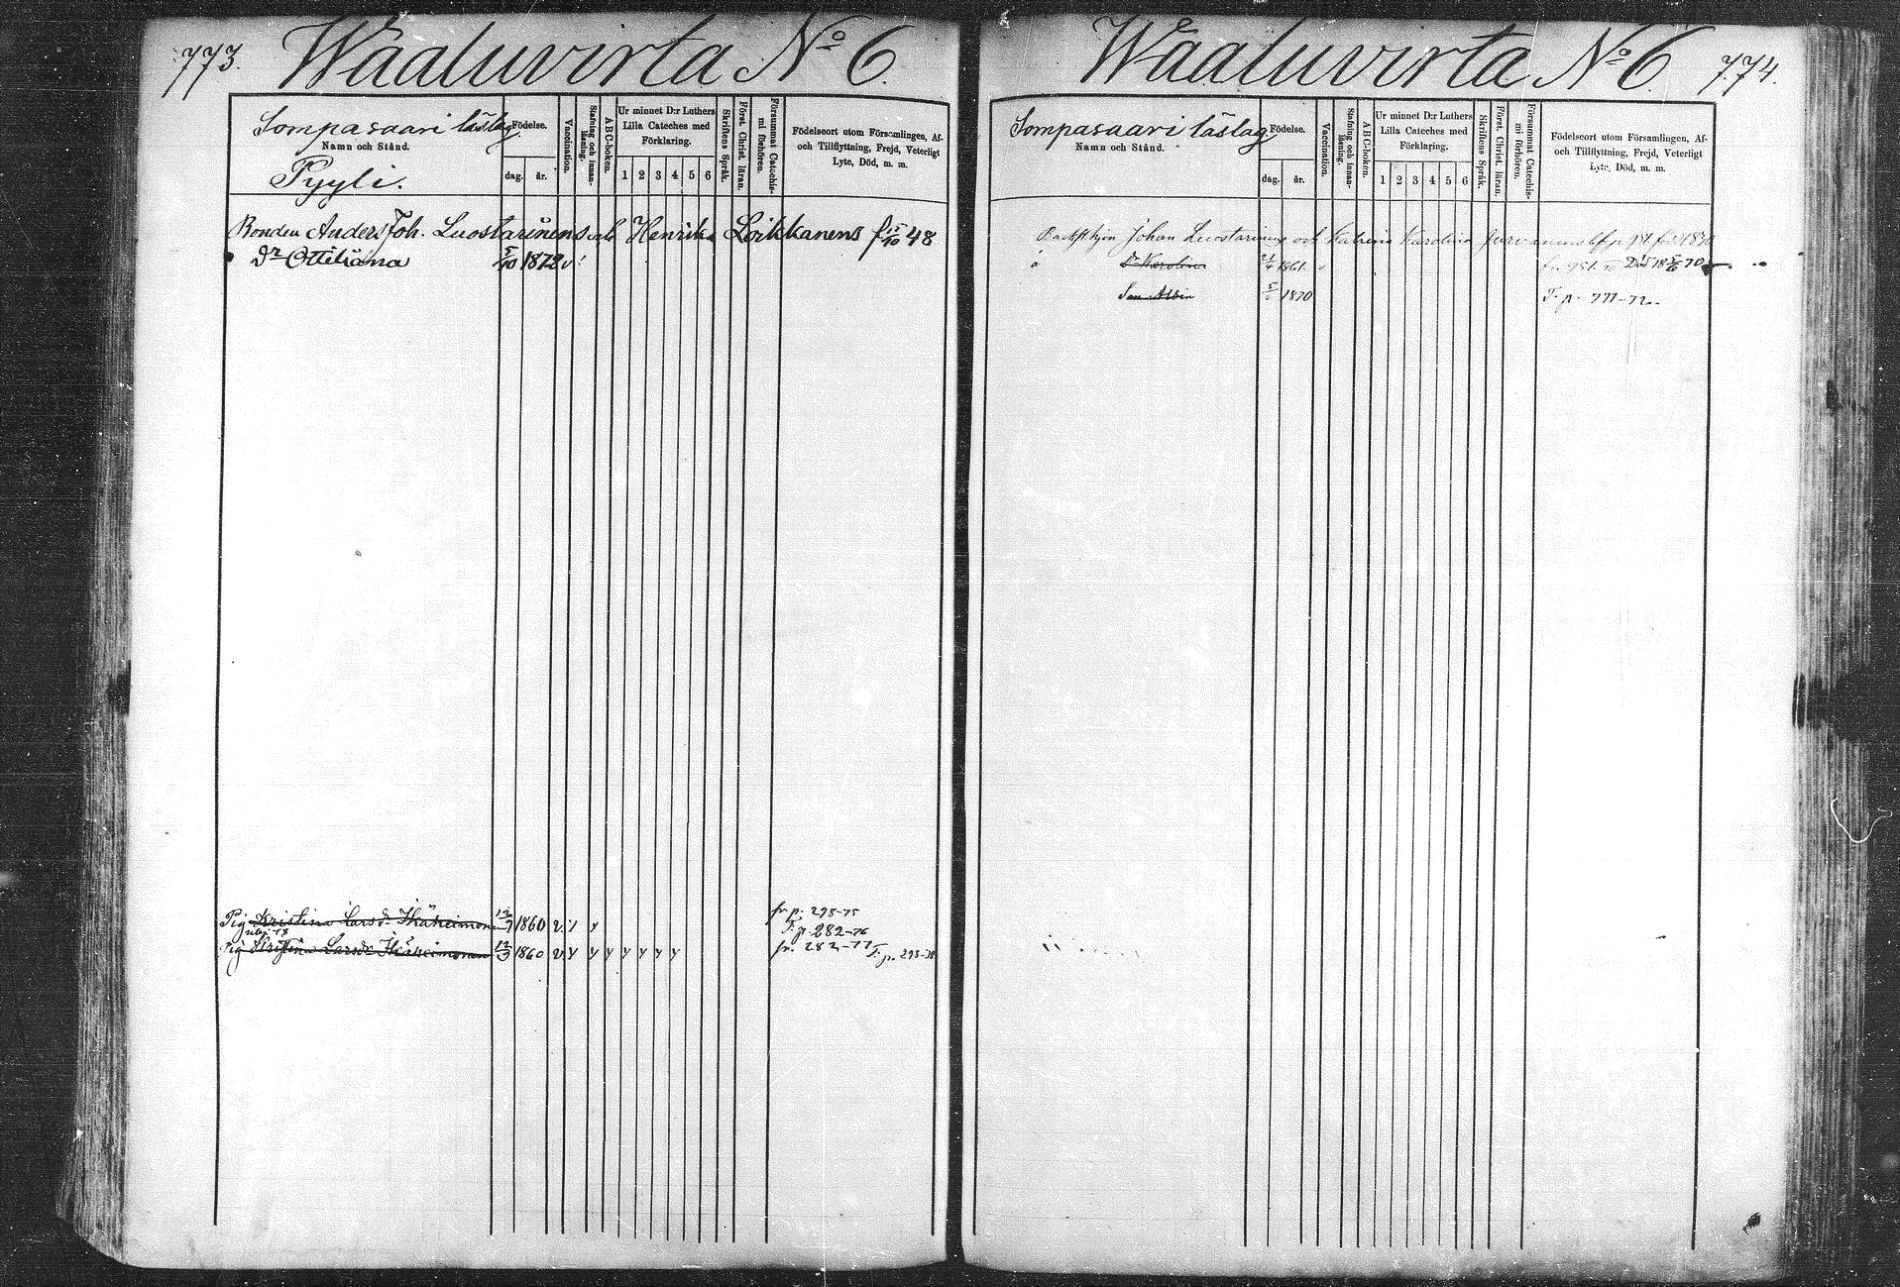 773. Wääluvirta No 6.
Sompasaari läslag
Namn och Stånd.
Pyyli.
Födelse.
dag. år.
Vaccination.
Stafning och innan-läsning.
ABC-boken.
Ur minnet D:r Luthers
Lilla Cateches med
Förklaring.
1 2 3 4 5 6
Skriftens Språk.
Först. Christ. läran.
Försummat Catechis-mi förhören.
Födelseort utom Församlingen, Af-
och Tillflyttning, Frejd, Veterligt
Lyte, Död, m. m.
Bonden Anders Joh. Luostarinens och Henrika Loikkanens f 15/10 48
Dr Ottiliana 5/10 1872 v
Pig Kristina Larsdr Ikäheimonen 12/9 1860 v. fr p. 298-75
T. p. 282-76
Pig Kristina Larsdr Ikäheimonen 12/9 1860 v y y y y y y y fr. 282-77 T. p. 298-78
Wääluvirta No 6. 774.
Sompasaari läslag
Namn och Stånd.
Födelse.
dag. år.
Vaccination.
Stafning och innan-läsning.
ABC-boken.
Ur minnet D:r Luthers
Lilla Cateches med
Förklaring.
1 2 3 4 5 6
Skriftens Språk.
Först. Christ. läran.
Försummat Catechis-mi förhören.
Födelseort utom Församlingen, Af-
och Tillflyttning, Frejd, Veterligt
Lyte, Död, m. m.
Johan Luostarinens och Katrina Karolina
Dr Karolina 1861 Död 18 5/6 70
Son Albin 1870 T. p. 771-72